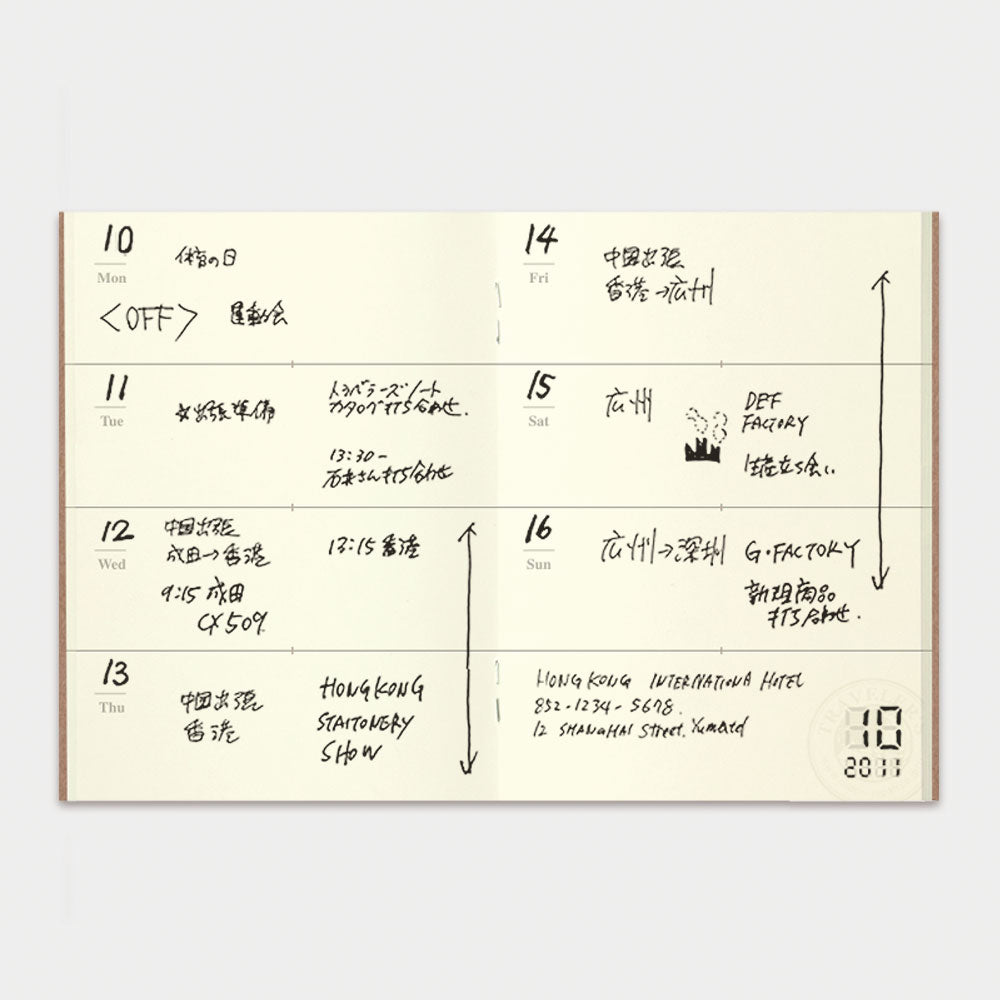 10
Mon
体育の日
<OFF> 運動会
11
Tue
☆出張準備
トラベラーズノート
カタログ打ち合わせ.
13:30-
石井さん打ち合わせ
12
Wed
中国出張
成田→香港
9:15 成田
CX509.
13:15 香港
13
Thu
中国出張
香港
HONG KONG
STAITONERY
SHOW
14
Fri
中国出張
香港→広州
15
Sat
広州
DEF
FACTORY
生産立ち会い
16
Sun
広州→深圳
G・FACTORY
新規商品
打ち合わせ.
HONG KONG INTERNATIONA HOTEL
852-1234-5678.
12 SHANGHAI Street. Yumatd
10
2011